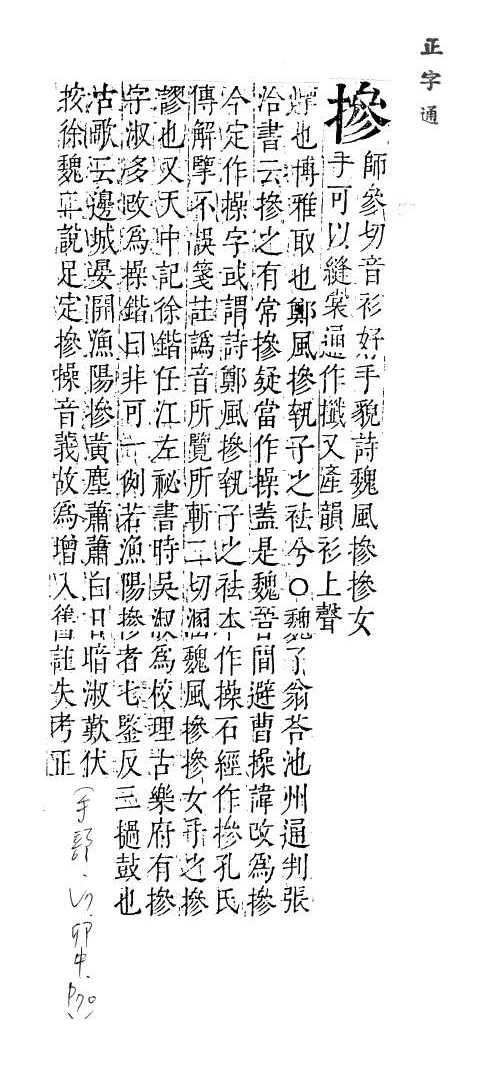 正字通
摻
師參切音衫好手貌詩魏風摻摻女
手可以縫裳通作攕又產韻衫上聲
擥也博雅取也鄭風摻執子之袪兮○魏了翁荅池州通判張
洽書云摻之有常摻疑當作操蓋是魏晉間避曹操諱改爲摻
今定作操字或謂詩鄭風摻執子之袪本作操石經作摻孔氏
傳解擥不誤箋註譌音所覽所斬二切溷魏風摻摻女手之摻
謬也又天中記徐鍇任江左祕書時吳淑爲校理古樂府有摻
字淑多改爲操鍇曰非可一例若漁陽摻者七鑒反三撾鼓也
古歌云邊城晏開漁陽摻黃塵蕭蕭白日暗淑歎伏
按徐魏二說足定摻操音義故爲增入舊註失考正
(手部· 卯中、P70)